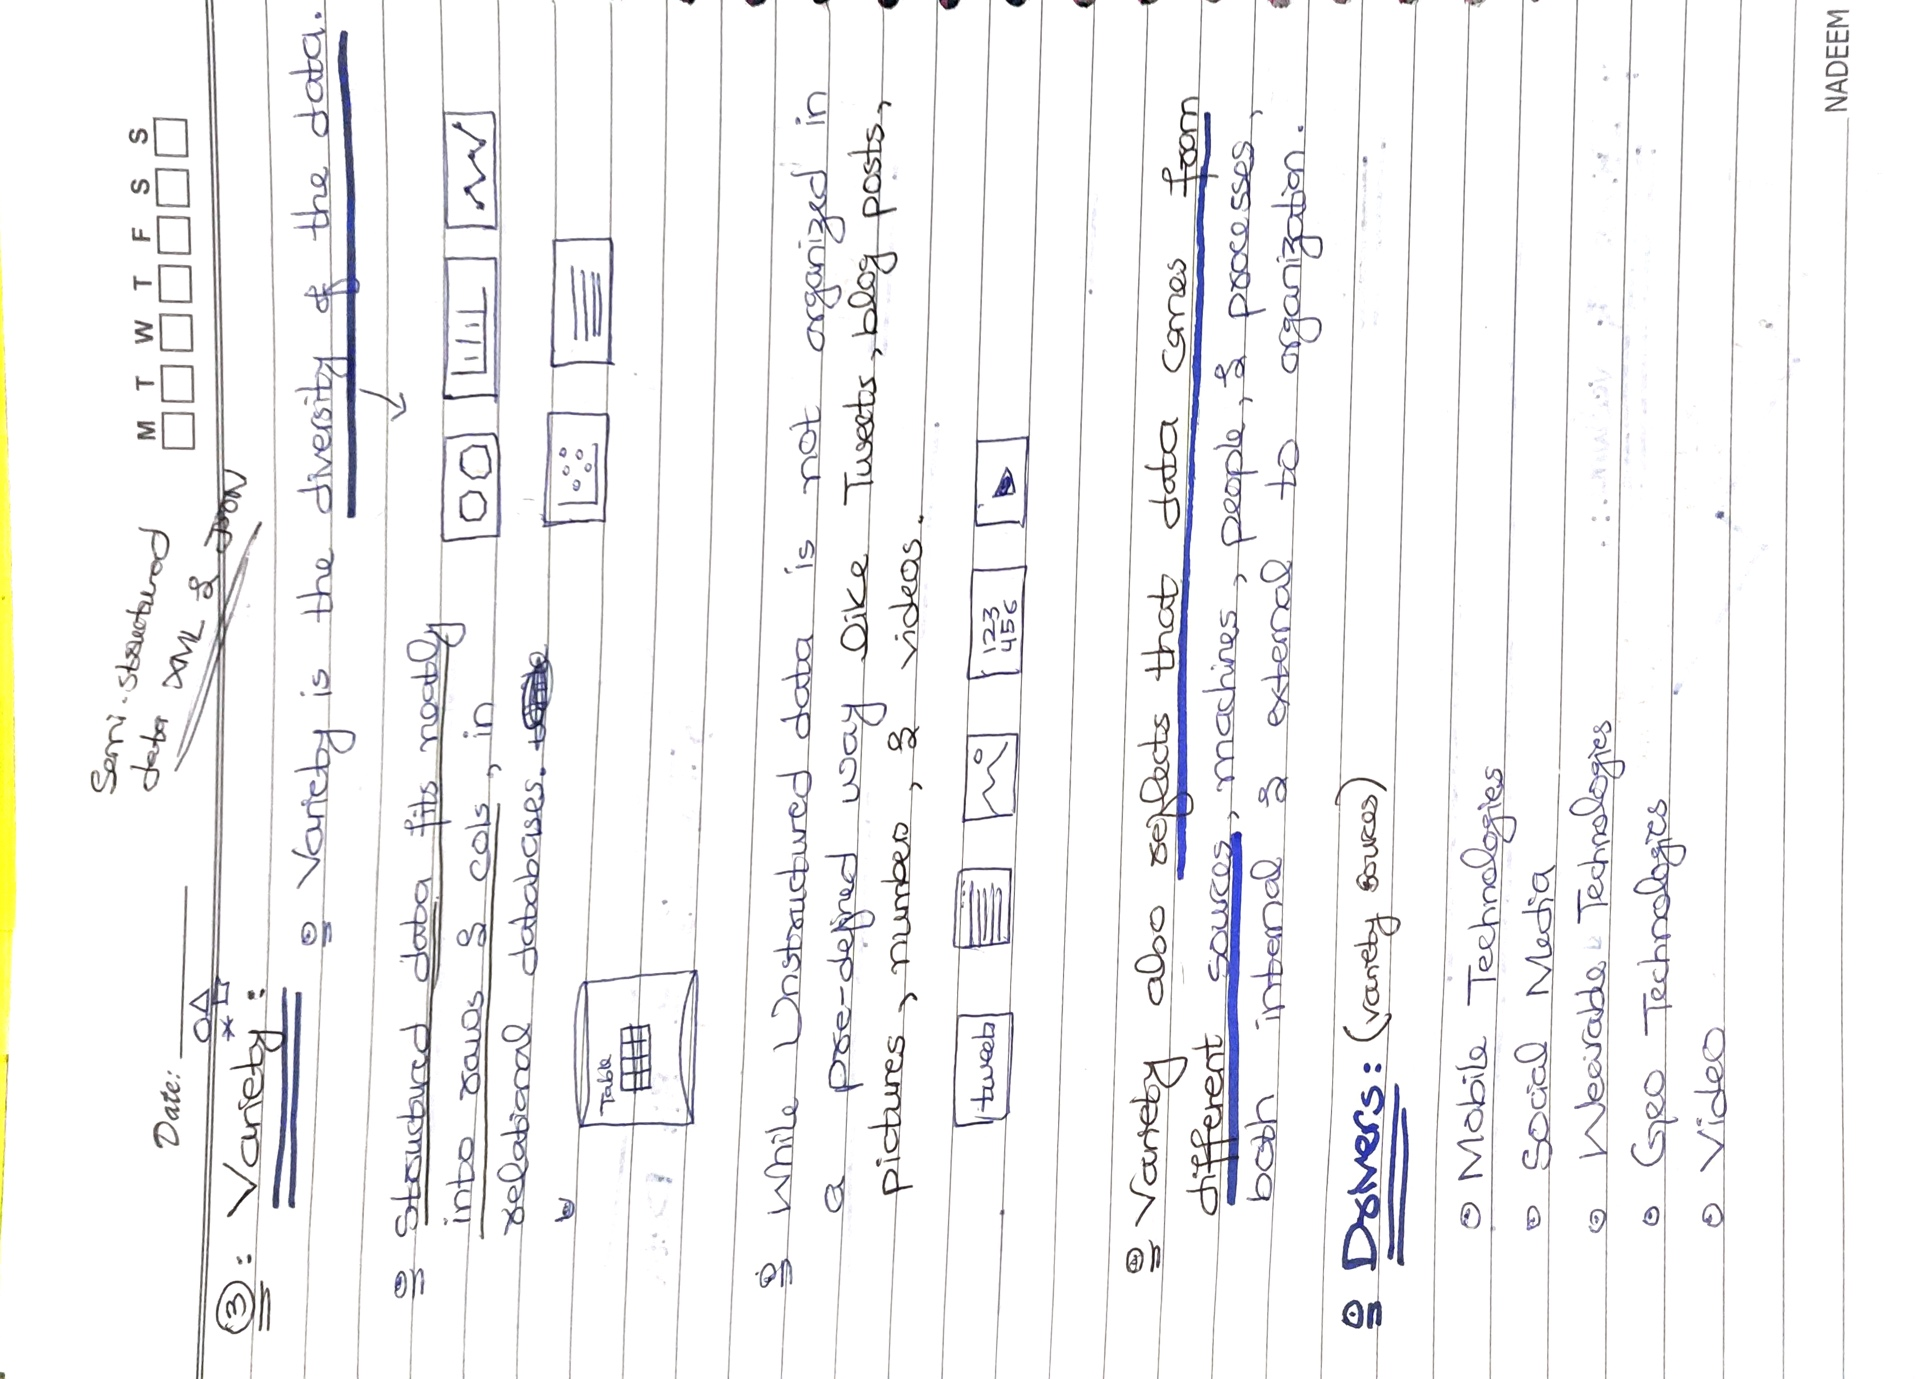 Date:
M T W T F S S
Semi-structured
data XML & JSON
③: Variety:
Variety is the diversity of the data.
Structured data fits neatly
into rows & cols, in
relational databases.
Table
While Unstructured data is not organized in
a pre-defined way like Tweets, blog posts,
pictures, numbers, & videos.
tweet
123
456
Variety also reflects that data comes from
different sources, machines, people, & processes,
both internal & external to organization.
Drivers: (variety sources)
Mobile Technologies
Social Media
Wearable Technologies
Geo Technologies
Video
NADEEM